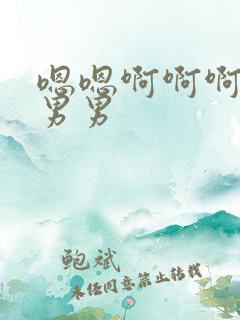 嗯嗯啊啊啊
男男
鲍斌
未经同意禁止转载